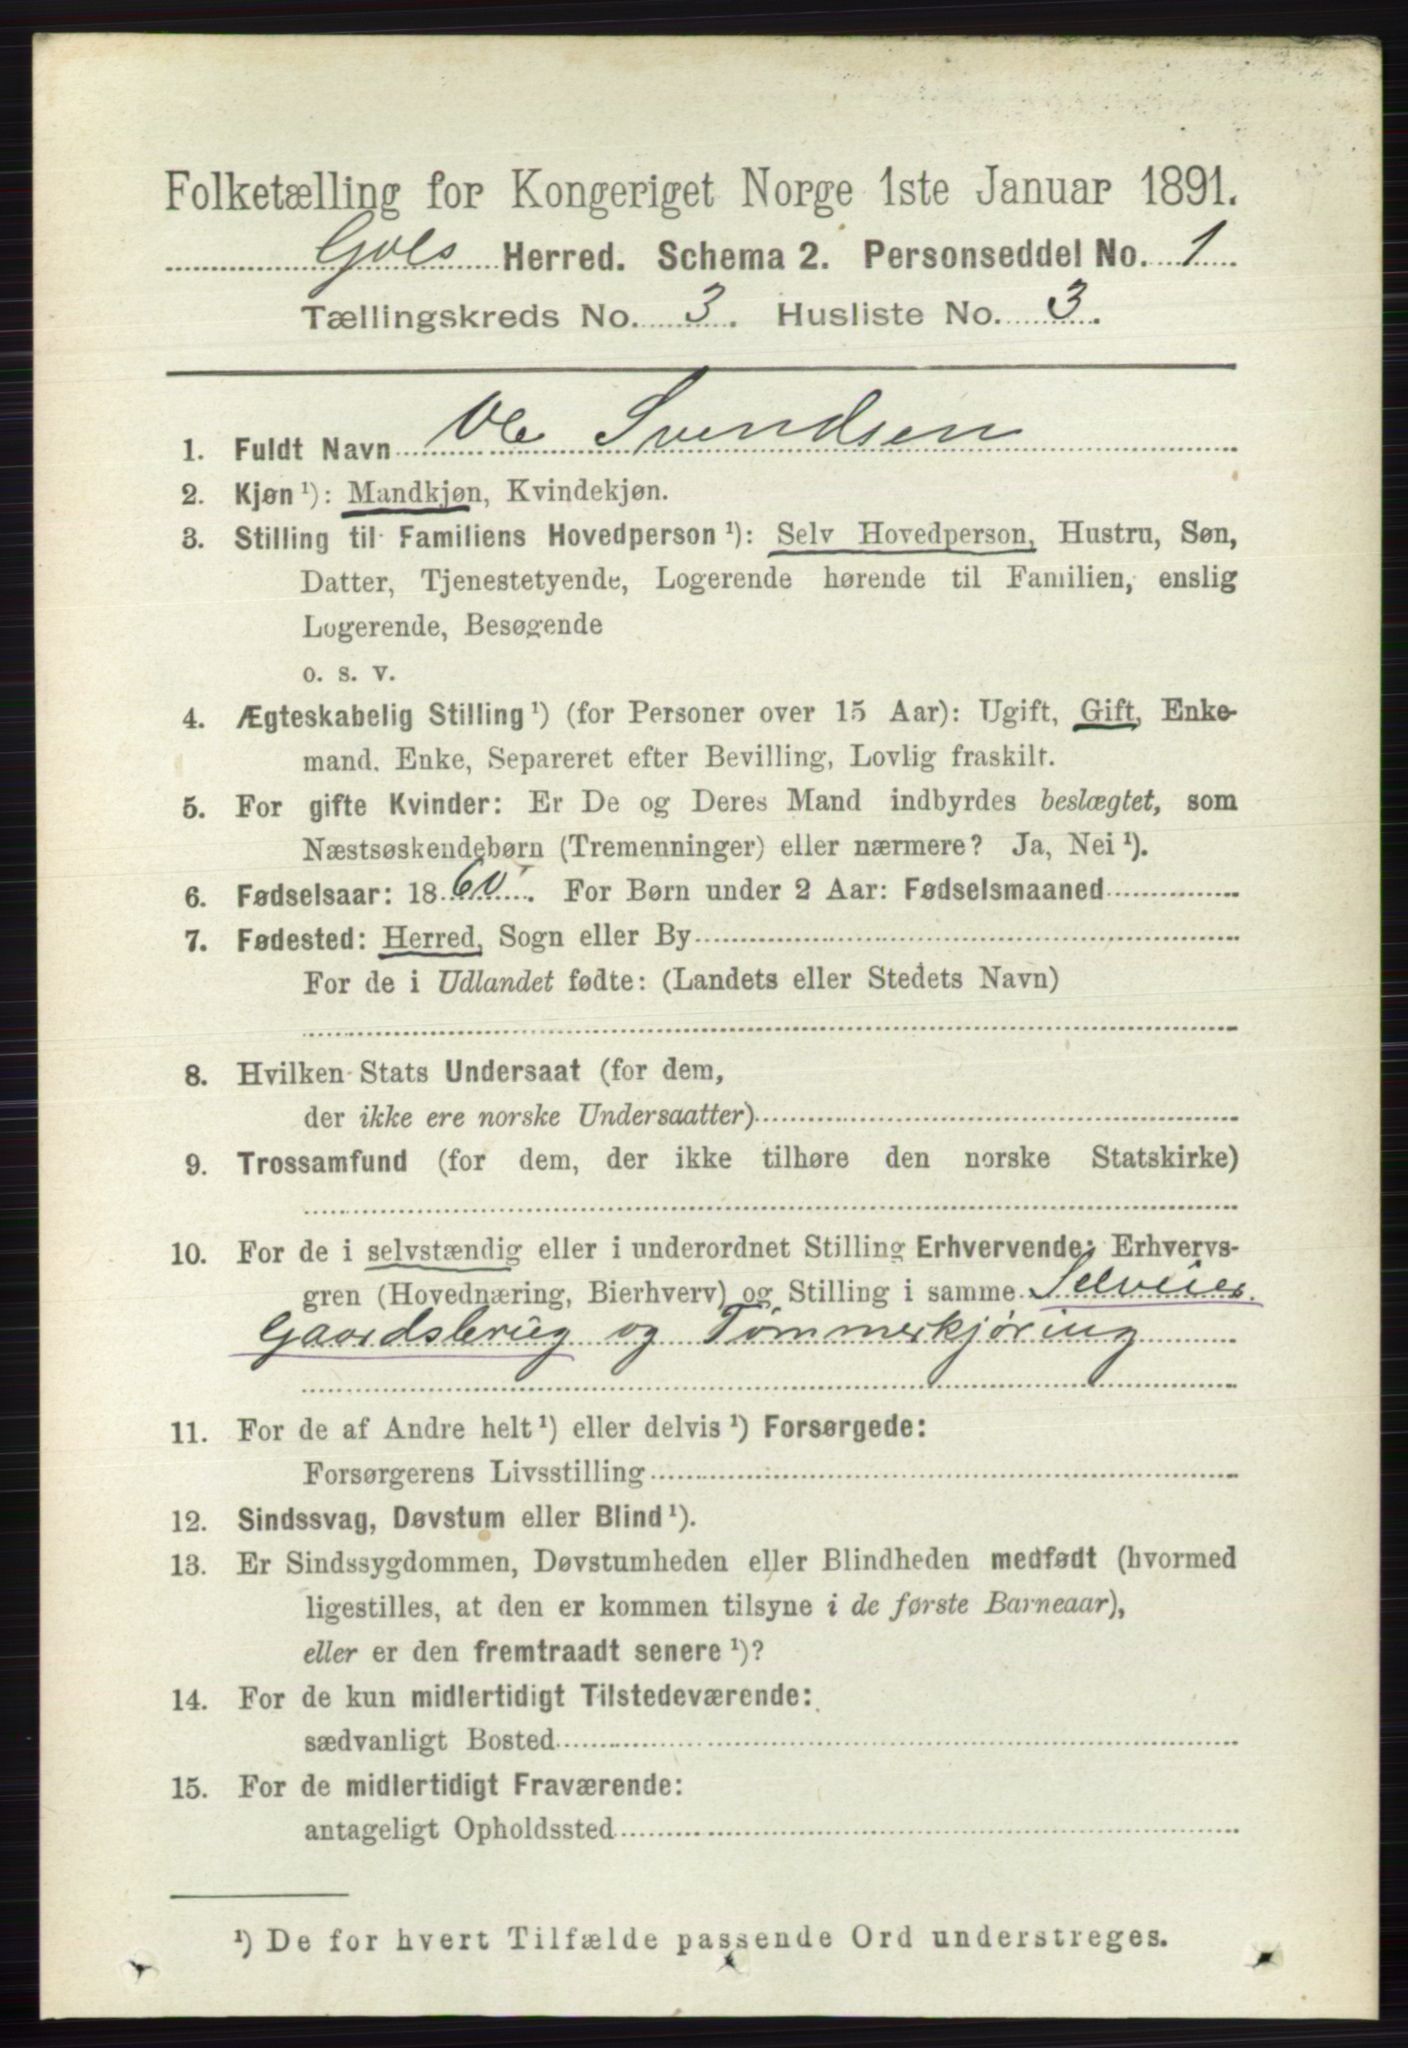 Folketælling for Kongeriget Norge 1ste Januar 1891.
Gols Herred. Schema 2. Personseddel No. 1
Tællingskreds No. 3. Husliste No. 3.
1. Fuldt Navn Ole Svendsen
2. Kjøn ¹): Mandkjøn, Kvindekjøn.
3. Stilling til Familiens Hovedperson ¹): Selv Hovedperson, Hustru, Søn,
Datter, Tjenestetyende, Logerende hørende til Familien, enslig
Logerende, Besøgende
o. s. v.
4. Ægteskabelig Stilling ¹) (for Personer over 15 Aar): Ugift, Gift, Enke-
mand. Enke, Separeret efter Bevilling, Lovlig fraskilt.
5. For gifte Kvinder: Er De og Deres Mand indbyrdes beslægtet, som
Næstsøskendebørn (Tremenninger) eller nærmere? Ja, Nei ¹).
6. Fødselsaar: 1860. For Børn under 2 Aar: Fødselsmaaned
7. Fødested: Herred, Sogn eller By
For de i Udlandet fødte: (Landets eller Stedets Navn)
8. Hvilken Stats Undersaat (for dem,
der ikke ere norske Undersaatter)
9. Trossamfund (for dem, der ikke tilhøre den norske Statskirke)
10. For de i selvstændig eller i underordnet Stilling Erhvervende: Erhvervs-
gren (Hovednæring, Bierhverv) og Stilling i samme Selveier
Gaardsbrug og Tømmerkjøring
11. For de af Andre helt ¹) eller delvis ¹) Forsørgede:
Forsørgerens Livsstilling
12. Sindssvag, Døvstum eller Blind ¹).
13. Er Sindssygdommen, Døvstumheden eller Blindheden medfødt (hvormed
ligestilles, at den er kommen tilsyne i de første Barneaar),
eller er den fremtraadt senere ¹)?
14. For de kun midlertidigt Tilstedeværende:
sædvanligt Bosted
15. For de midlertidigt Fraværende:
antageligt Opholdssted
¹) De for hvert Tilfælde passende Ord understreges.